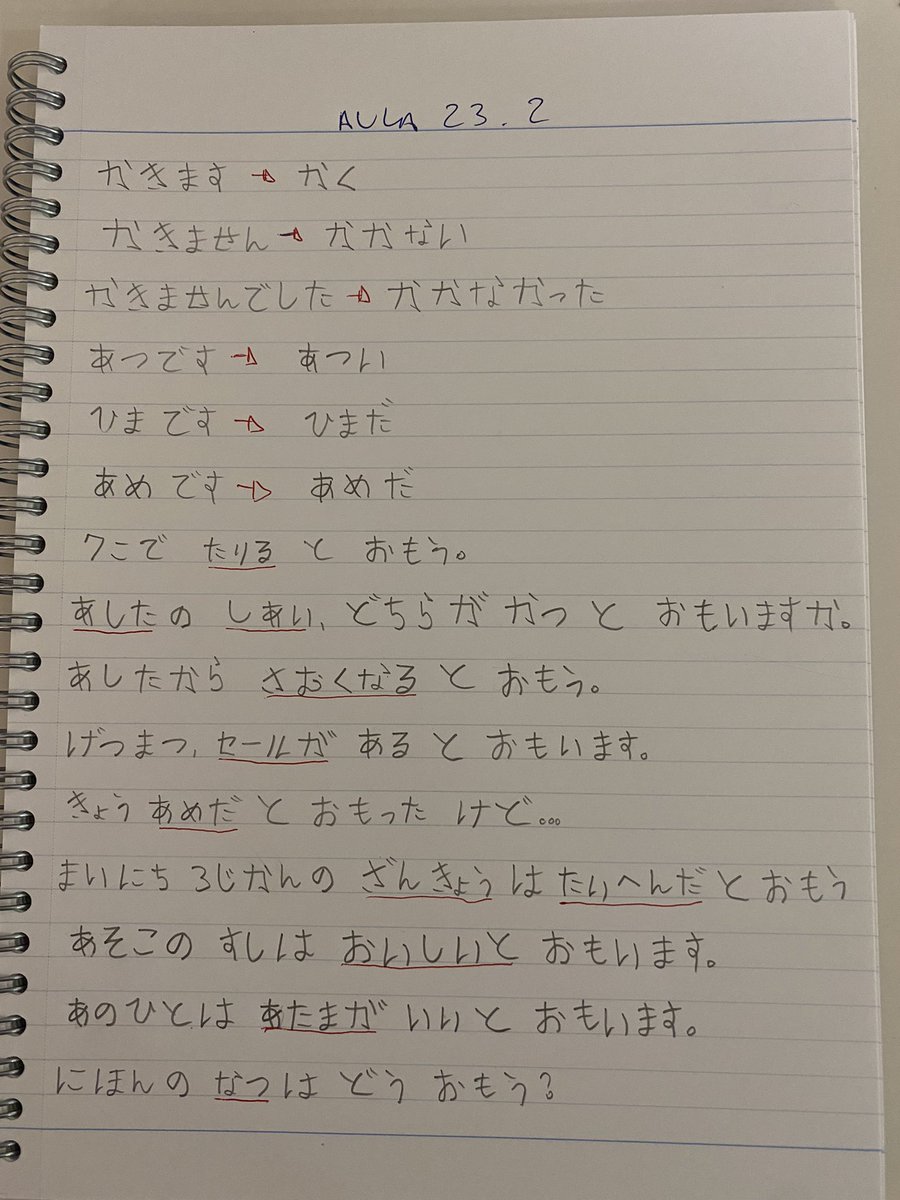 AULA 23.2
かきます → かく
かきません → かかない
かきませんでした → かかなかった
あつです → あつい
ひまです → ひまだ
あめです → あめだ
7こで たりる と おもう。
あしたの しあい、どちらが かつ と おもいますか。
あしたから さおくなる と おもう。
げつまつ、セールが ある と おもいます。
きょう あめだ と おもった けど...
まいにち 3じかんの ざんきょう は たいへんだ と おもう
あそこの すしは おいしいと おもいます。
あのひとは あたまが いい と おもいます。
にほんの なつは どう おもう?